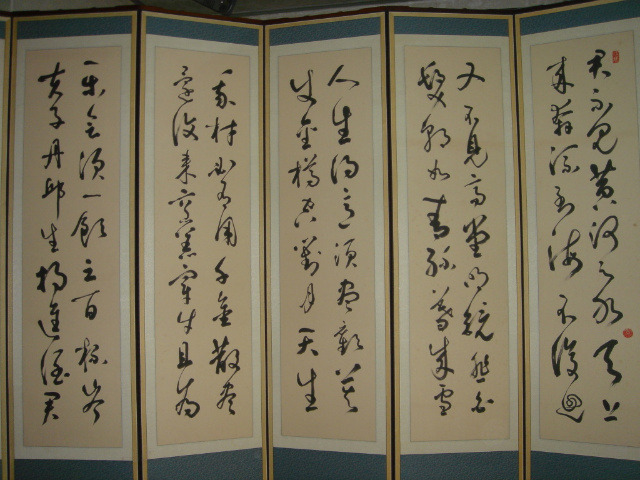 君不見黃河之水天上
來奔流到海不復回
又不見高堂明鏡悲白
髮朝如青絲暮成雪
人生得意須盡歡莫
使金樽空對月天生
我材必有用千金散盡
還復來烹羔宰牛且為
樂會須一飲三百杯岑
夫子丹邱生將進酒君